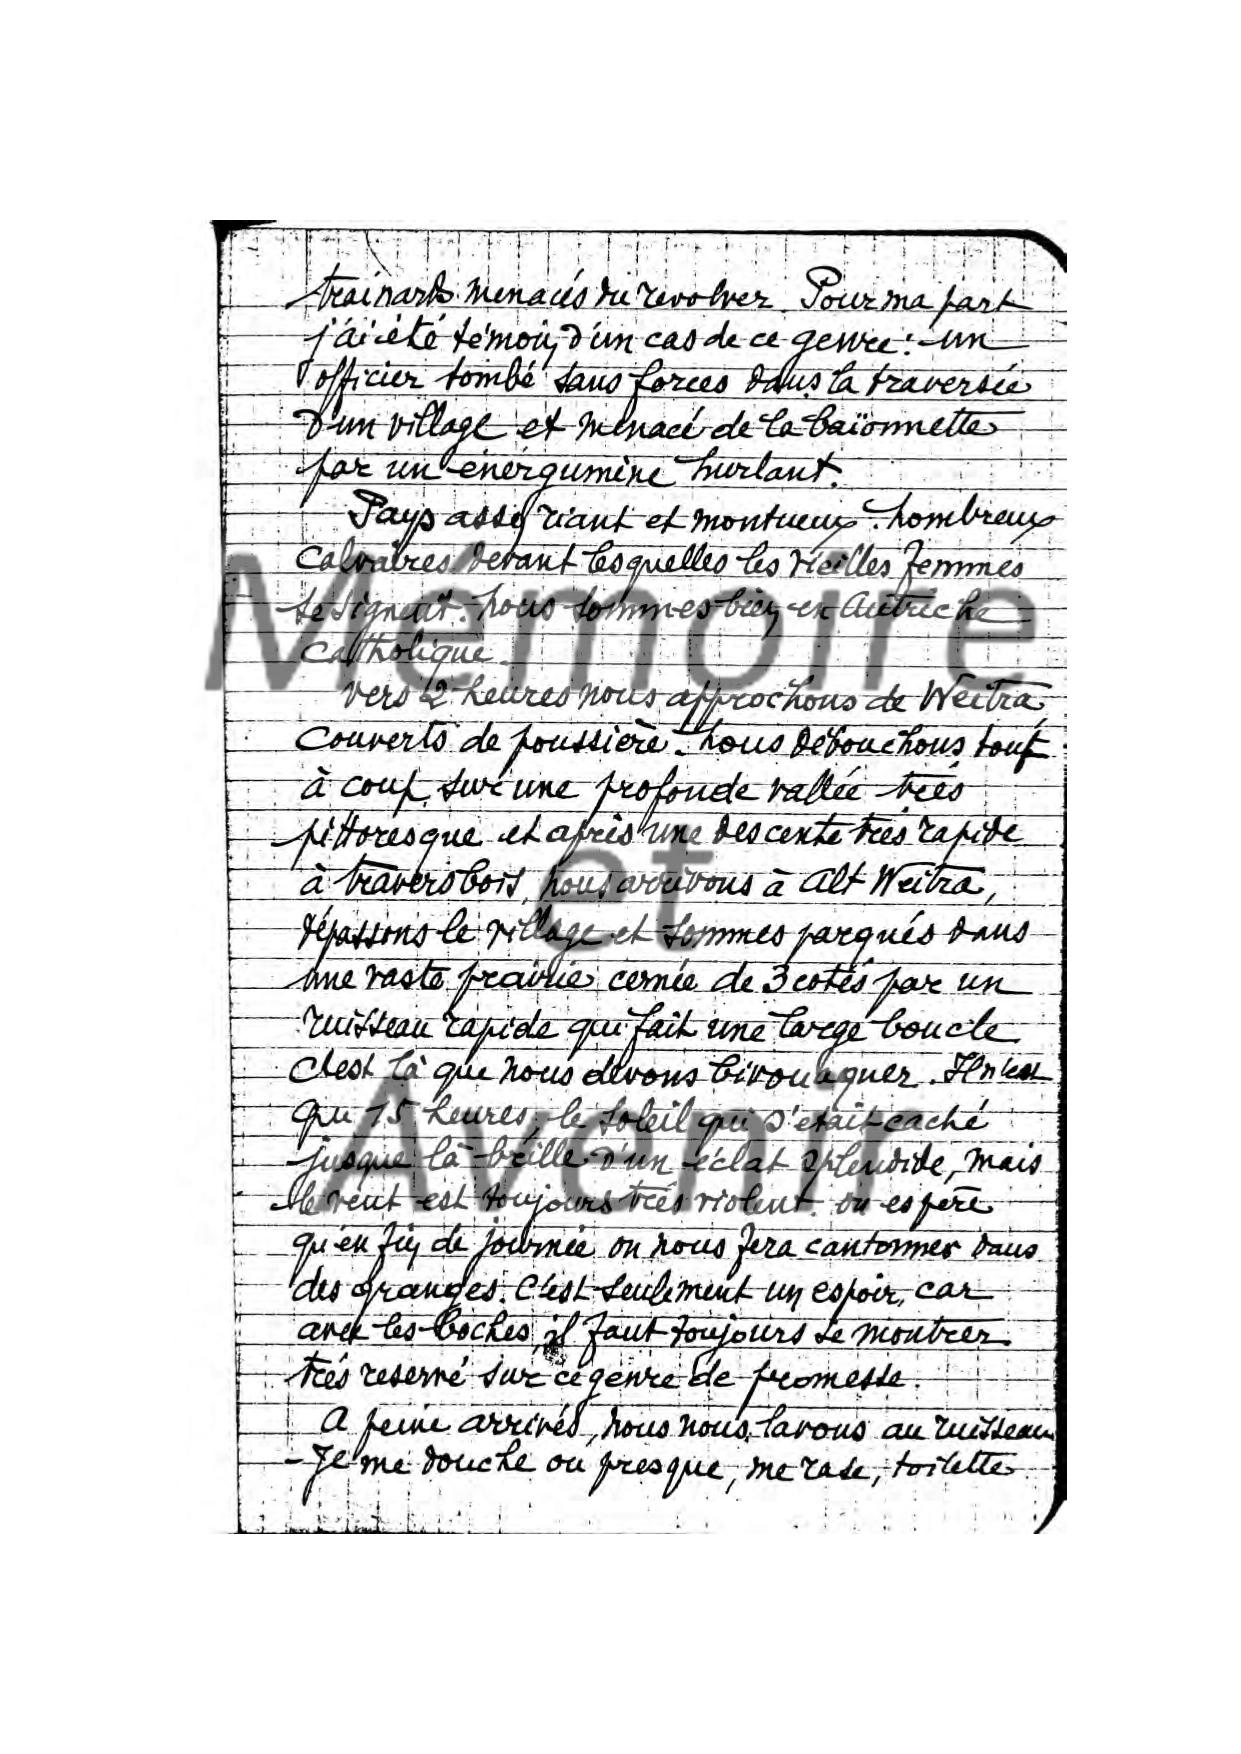 trainards menacés du revolver. Pour ma part
j'ai été témoin d'un cas de ce genre : un
officier tombé sans forces dans la traversée
d'un village et menacé de la baïonnette
par un énergumène hurlant.
Pays assez riant et montueux. nombreux
calvaires devant lesquelles les vieilles femmes
se signent. nous sommes bien en Autriche
catholique.
vers 2 heures nous approchons de Weitra,
couverts de poussière. nous débouchons tout
à coup sur une profonde vallée très
pittoresque et après une descente très rapide
à travers bois, nous arrivons à Alt Weitra,
dépassons le village et sommes parqués dans
une vaste prairie cernée de 3 cotés par un
ruisseau rapide qui fait une large boucle
c'est là que nous devons bivouaquer. Il n'est
que 15 heures, le soleil qui s'était caché
jusque là brille d'un éclat splendide, mais
le vent est toujours très violent. on espère
qu'en fin de journée on nous fera cantonner dans
des granges. C'est seulement un espoir, car
avec les boches, il faut toujours se montrer
très reservé sur ce genre de promesse.
A peine arrivés, nous nous lavons au ruisseau
- Je me douche ou presque, me rase, toilette
Mémoire
et
Avenir